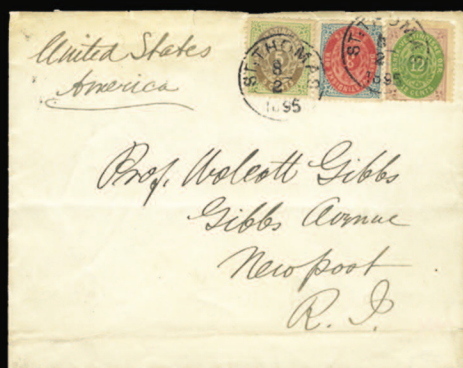 United States
America
ST. THOMAS
8
2
1895
ST. THOMAS
8
2
1895
Prof. Wolcott Gibbs
Gibbs Avenue
Newport
R. I.